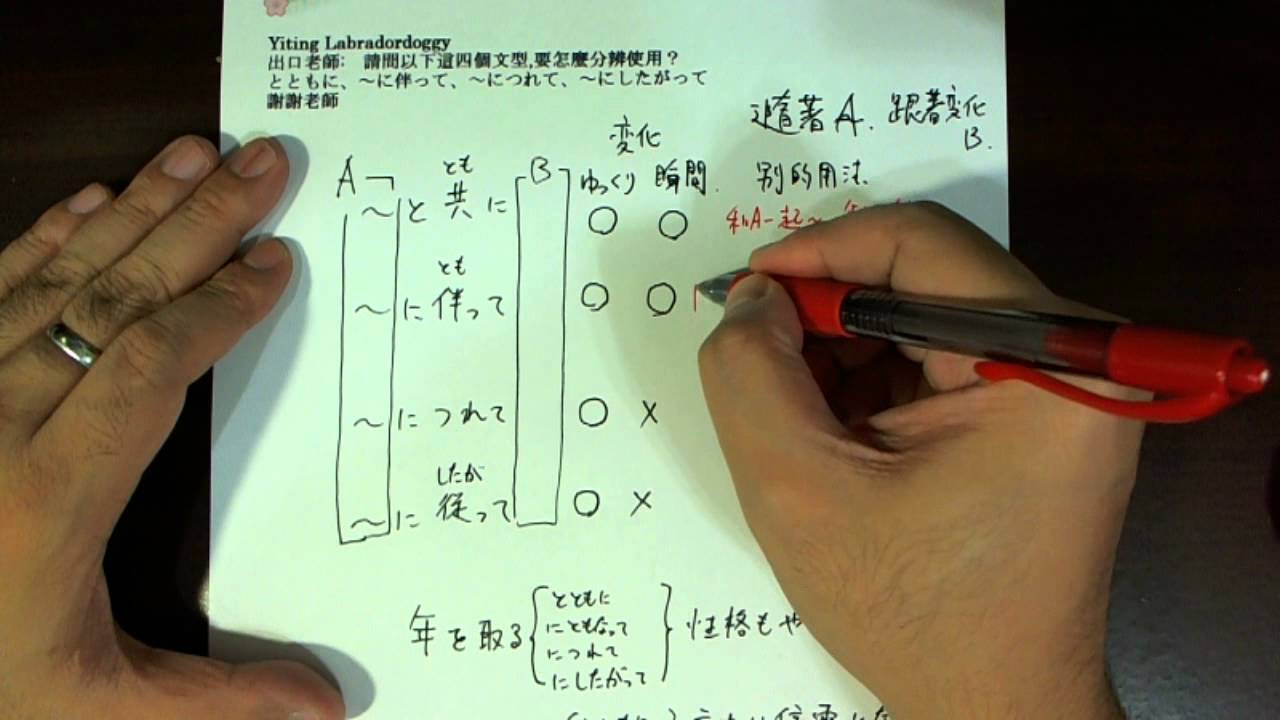 Yiting Labradordoggy
出口老師: 請問以下這四個文型,要怎麼分辨使用？
とともに、～に伴って、～につれて、～にしたがって
謝謝老師
隨著A. 跟著変化
B.
変化
A B ゆっくり 瞬間. 別的用法.
とも
～と共に ○ ○ 和A一起～
とも
～に伴って ○ ○
～につれて ○ ×
したが
～に従って ○ ×
年を取る 性格もや
とともに
にともなって
につれて
にしたがって